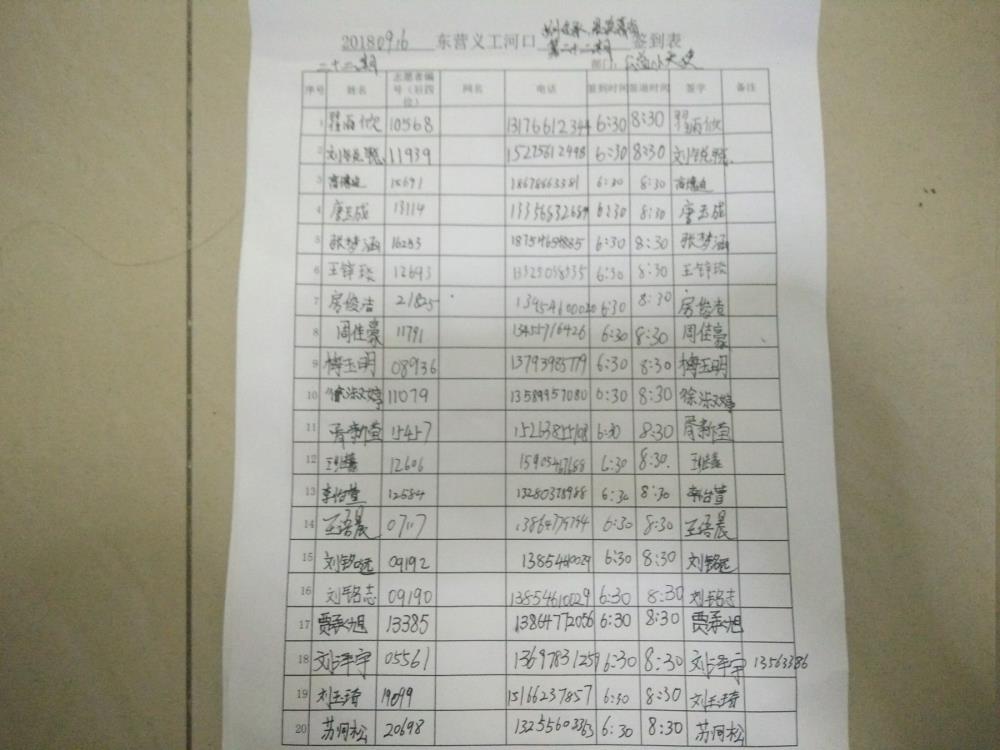 20180916 东营义工河口 签到表
第二十二期
二十二期 部门：公益小天使
序号 姓名 志愿者编号（后四位） 网名 电话 签到时间 签退时间 签字 备注
1 翟雨欣 10568 13176612344 6:30 8:30 翟雨欣
2 11939 15275612498 6:30 8:30
3 18678663381 6:30 8:30
4 唐玉成 13114 6:30 8:30 唐玉成
5 张梦涵 16253 18754694885 6:30 8:30 张梦涵
6 12693 13325038335 6:30 8:30
7 房俊洁 21825 13454600020 6:30 8:30 房俊洁
8 周佳豪 11791 13455716426 6:30 8:30 周佳豪
9 梅玉明 08936 13793985779 6:30 8:30 梅玉明
10 徐淑婷 11079 13589957080 6:30 8:30 徐淑婷
11 15457 6:30 8:30
12 12606 15905467688 6:30 8:30.
13 李怡萱 12584 13280378988 6:30 8:30 李怡萱
14 王语晨 6:30 8:30 王语晨
15 刘铭远 09192 6:30 8:30 刘铭远
16 刘铭志 09190 13854610029 6:30 8:30 刘铭志
17 贾承旭 13385 13864772056 6:30 8:30 贾承旭
18 刘泽宇 05561 13697831259 6:30 8:30 刘泽宇 13563386
19 刘玉琦 19099 15166237857 6:30 8:30 刘玉琦
20 苏何松 20698 13255603363 6:30 8:30 苏何松